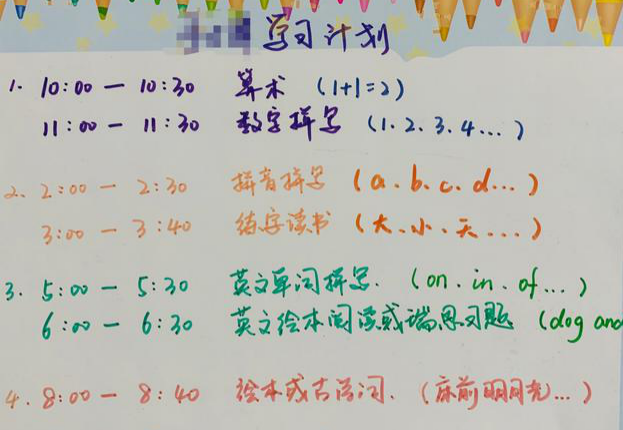 学习计划
1. 10:00 — 10:30 算术 (1+1=2)
11:00 — 11:30 数字拼写 (1.2.3.4...)
2. 2:00 — 2:30 拼音拼写 (a.b.c.d...)
3:00 — 3:40 练字读书 (大.小.天....)
3. 5:00 — 5:30 英文单词拼写. (on.in.of...)
6:00 — 6:30 英文绘本阅读或瑞思习题 (dog and
4. 8:00 — 8:40 绘本或古诗词. (床前明月光...)